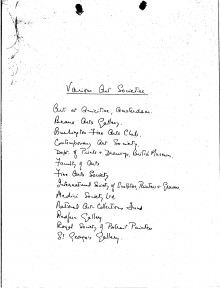 Various Art Societies
Art et Amicitiae, Amsterdam.
Beaux Arts Gallery.
Burlington Fine Arts Club.
Contemporary Art Society.
Dept. of Prints & Drawings, British Museum.
Faculty of Arts
Fine Arts Society
International Society of Sculptors, Painters & Gravers
Medici Society Ltd.
National Art-Collections Fund
Redfern Gallery
Royal Society of Portrait Painters
St. George's Gallery.